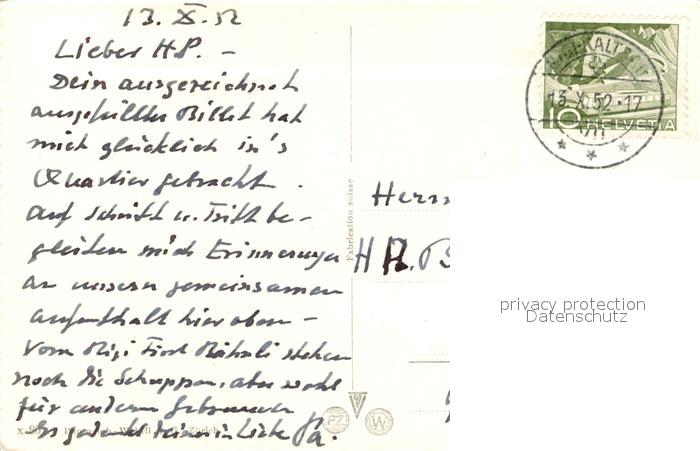 13. X. 52
Lieber H.P. –
Dein ausgezeichnet
ausgefülltes Billet hat
mich glücklich in's
Quartier gebracht.
Auf Schritt u. Tritt be-
gleiten mich Erinnerungen
an unsern gemeinsamen
Aufenthalt hier oben –
Vom Rigi First Bähnli stehen
noch die Schuppen, aber wohl
für andern Gebrauch
Es gedenkt in Liebe Pa.
Fabrication suisse
Herrn
H
KALTBAD
13.X.52.17
10 HELVETIA
PZ
W
privacy protection
Datenschutz